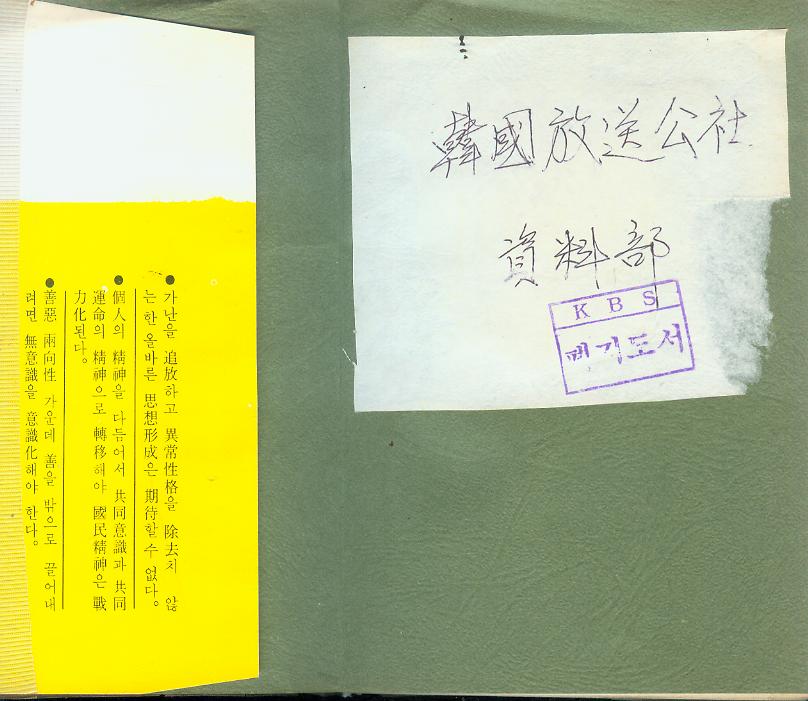 韓國放送公社
資料部
KBS
폐기도서
● 가난을 追放하고 異常性格을 除去치 않
는 한 올바른 思想形成은 期待할 수 없다。
● 個人의 精神을 다듬어서 共同意識과 共同
運命의 精神으로 轉移해야 國民精神은 戰
力化된다。
● 善惡 兩向性 가운데 善을 밖으로 끌어내
려면 無意識을 意識化해야 한다。